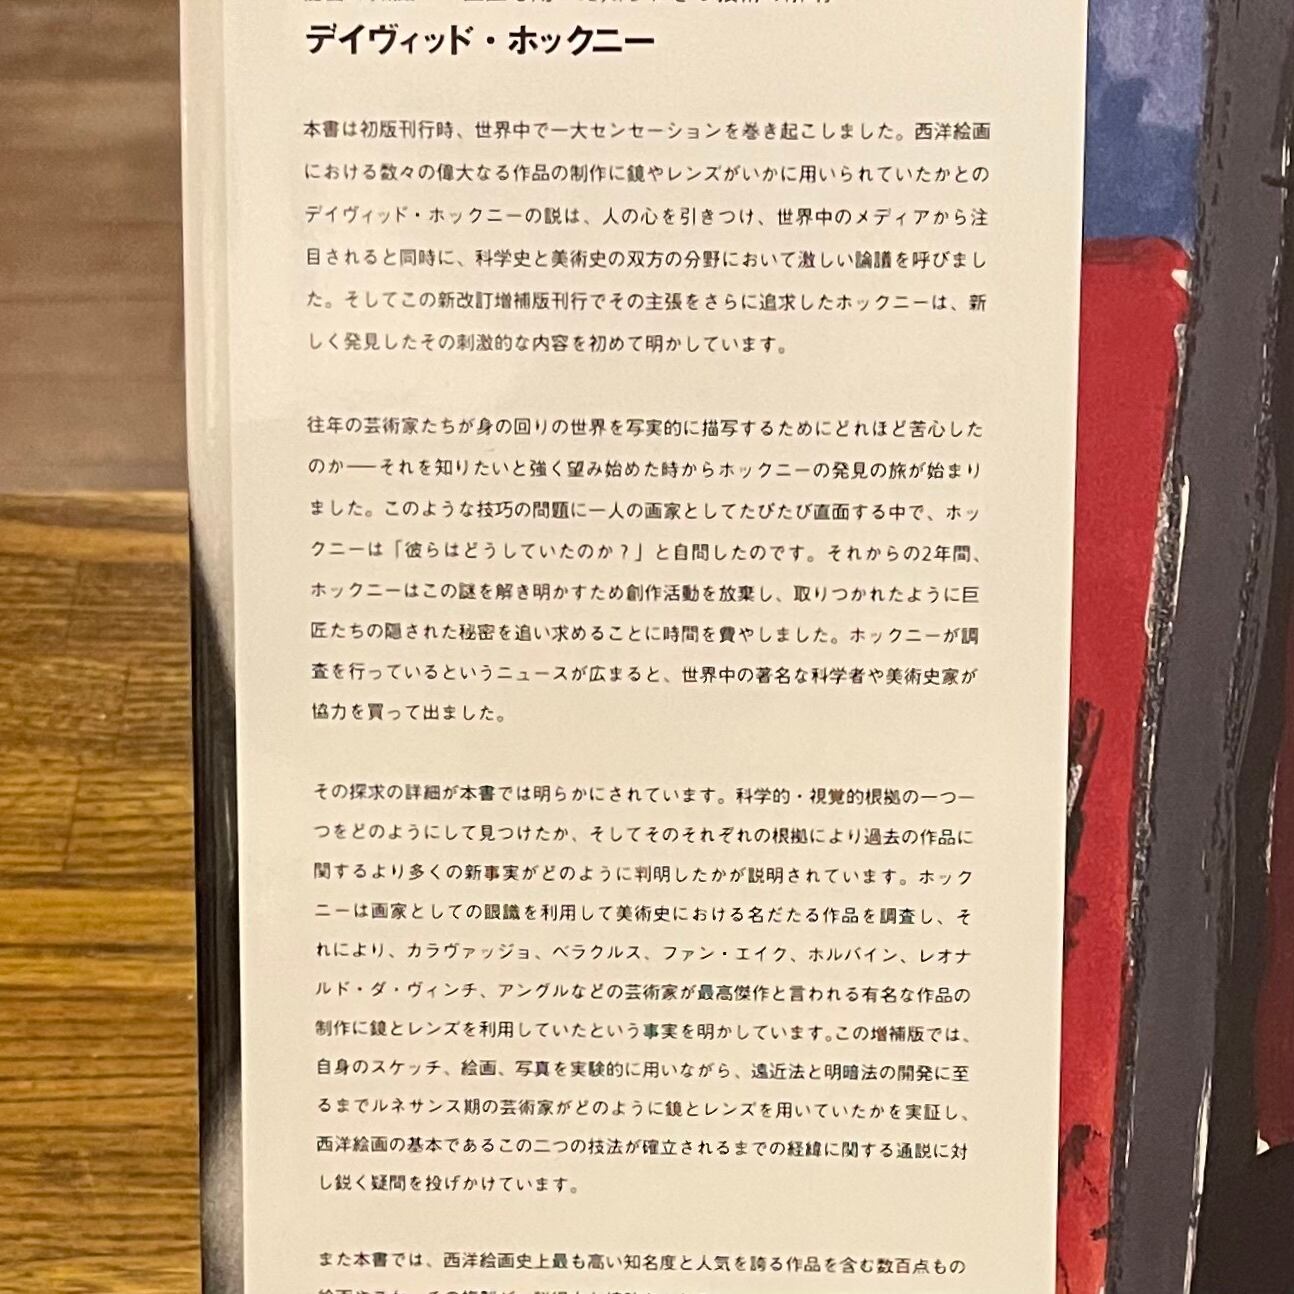 デイヴィッド・ホックニー
本書は初版刊行時、世界中で一大センセーションを巻き起こしました。西洋絵画
における数々の偉大なる作品の制作に鏡やレンズがいかに用いられていたかとの
デイヴィッド・ホックニーの説は、人の心を引きつけ、世界中のメディアから注
目されると同時に、科学史と美術史の双方の分野において激しい論議を呼びまし
た。そしてこの新改訂増補版刊行でその主張をさらに追求したホックニーは、新
しく発見したその刺激的な内容を初めて明かしています。
往年の芸術家たちが身の回りの世界を写実的に描写するためにどれほど苦心した
のか——それを知りたいと強く望み始めた時からホックニーの発見の旅が始まり
ました。このような技巧の問題に一人の画家としてたびたび直面する中で、ホッ
クニーは「彼らはどうしていたのか？」と自問したのです。それからの2年間、
ホックニーはこの謎を解き明かすため創作活動を放棄し、取りつかれたように巨
匠たちの隠された秘密を追い求めることに時間を費やしました。ホックニーが調
査を行っているというニュースが広まると、世界中の著名な科学者や美術史家が
協力を買って出ました。
その探求の詳細が本書では明らかにされています。科学的・視覚的根拠の一つ一
つをどのようにして見つけたか、そしてそのそれぞれの根拠により過去の作品に
関するより多くの新事実がどのように判明したかが説明されています。ホック
ニーは画家としての眼識を利用して美術史における名だたる作品を調査し、そ
れにより、カラヴァッジョ、ベラクルス、ファン・エイク、ホルバイン、レオナ
ルド・ダ・ヴィンチ、アングルなどの芸術家が最高傑作と言われる有名な作品の
制作に鏡とレンズを利用していたという事実を明かしています。この増補版では、
自身のスケッチ、絵画、写真を実験的に用いながら、遠近法と明暗法の開発に至
るまでルネサンス期の芸術家がどのように鏡とレンズを用いていたかを実証し、
西洋絵画の基本であるこの二つの技法が確立されるまでの経緯に関する通説に対
し鋭く疑問を投げかけています。
また本書では、西洋絵画史上最も高い知名度と人気を誇る作品を含む数百点もの